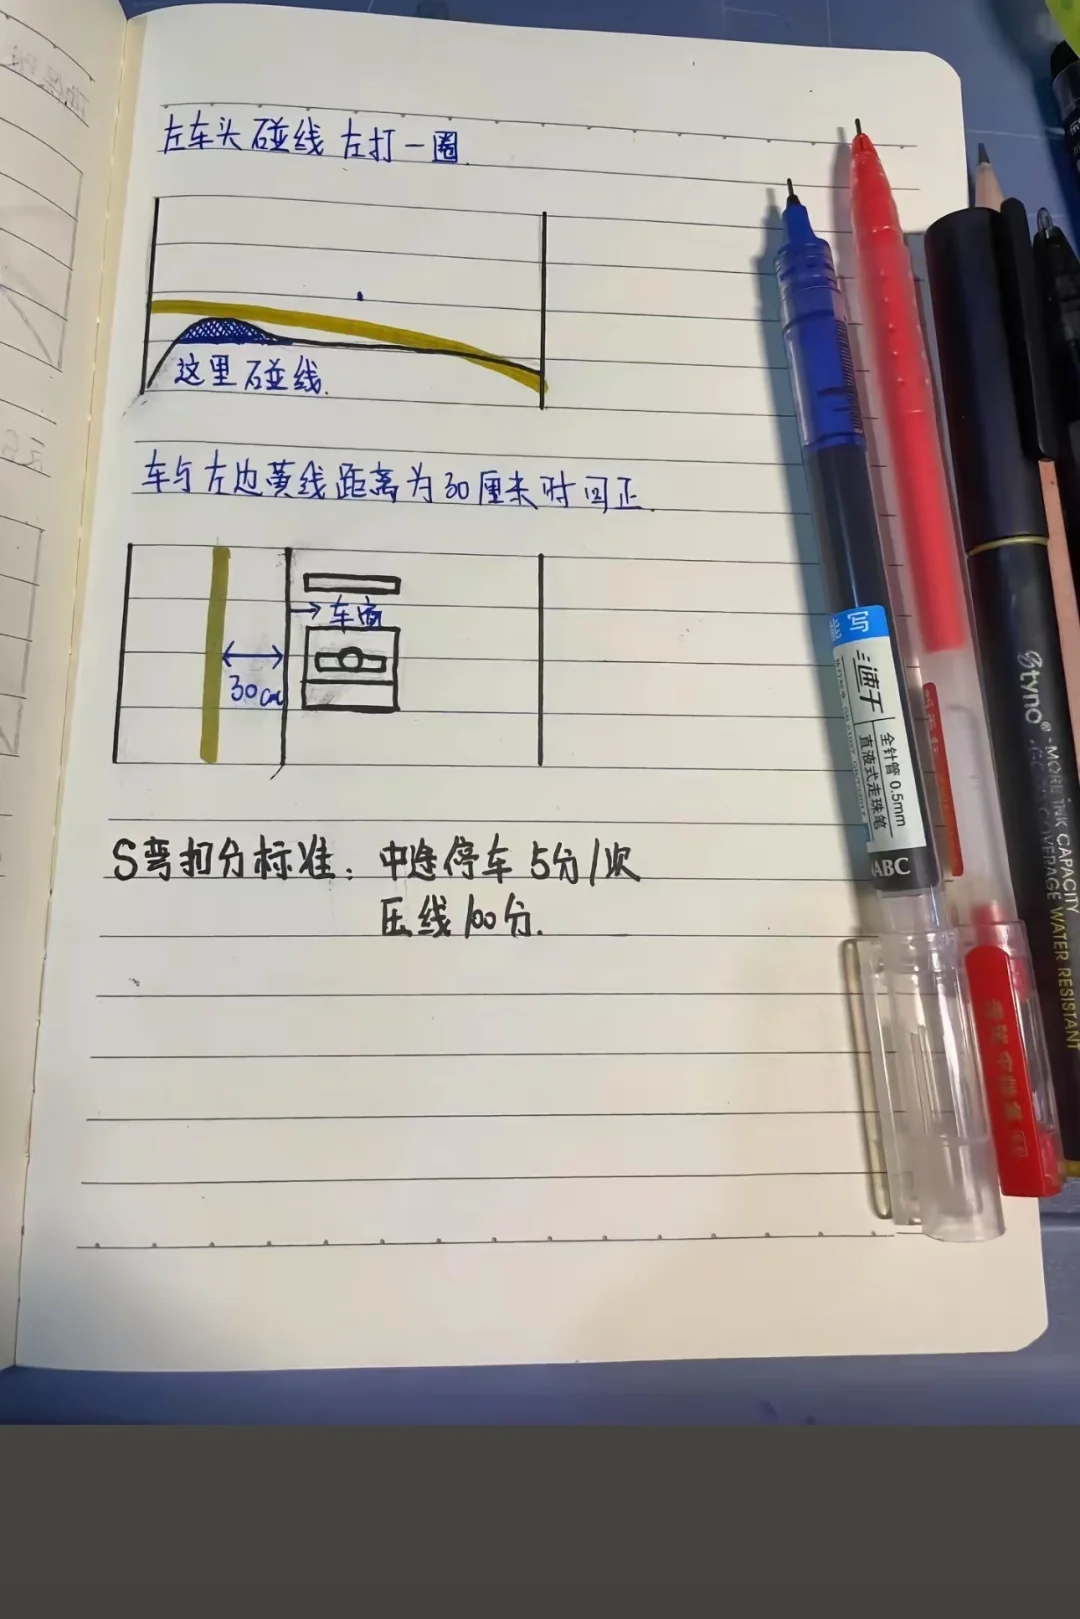 左车头碰线 左打一圈.
这里碰线.
车与左边黄线距离为30厘米时回正.
车窗
30cm
S弯扣分标准: 中途停车 5分/次
压线 100分.
写
速干
全针管 0.5mm
直液式走珠笔
ABC
Styno®
·MORE INK CAPACITY
WATER RESISTANT